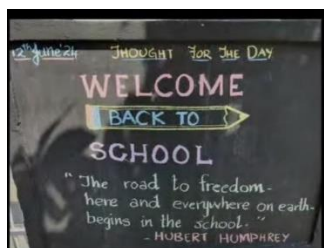 12th June'24 THOUGHT FOR THE DAY
WELCOME
BACK TO
SCHOOL
"The road to freedom-
here and everywhere on earth-
begins in the school."
- HUBERT HUMPHREY